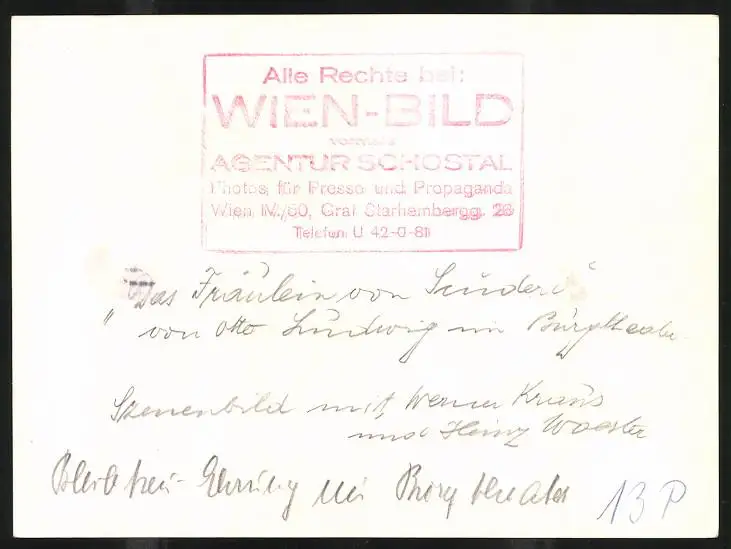 Alle Rechte bei:
WIEN-BILD
vormals
AGENTUR SCHOSTAL
Photos für Presse und Propaganda
Wien IV./50, Graf Starhembergg. 26
Telefon U 42-0-81
"Das Fräulein von Scuderi"
von Otto Ludwig im Burgtheater
Szenenbild mit Werner Kraus
und Heinz Woester
Bleibtreu-Ehrung im Burgtheater
13 P